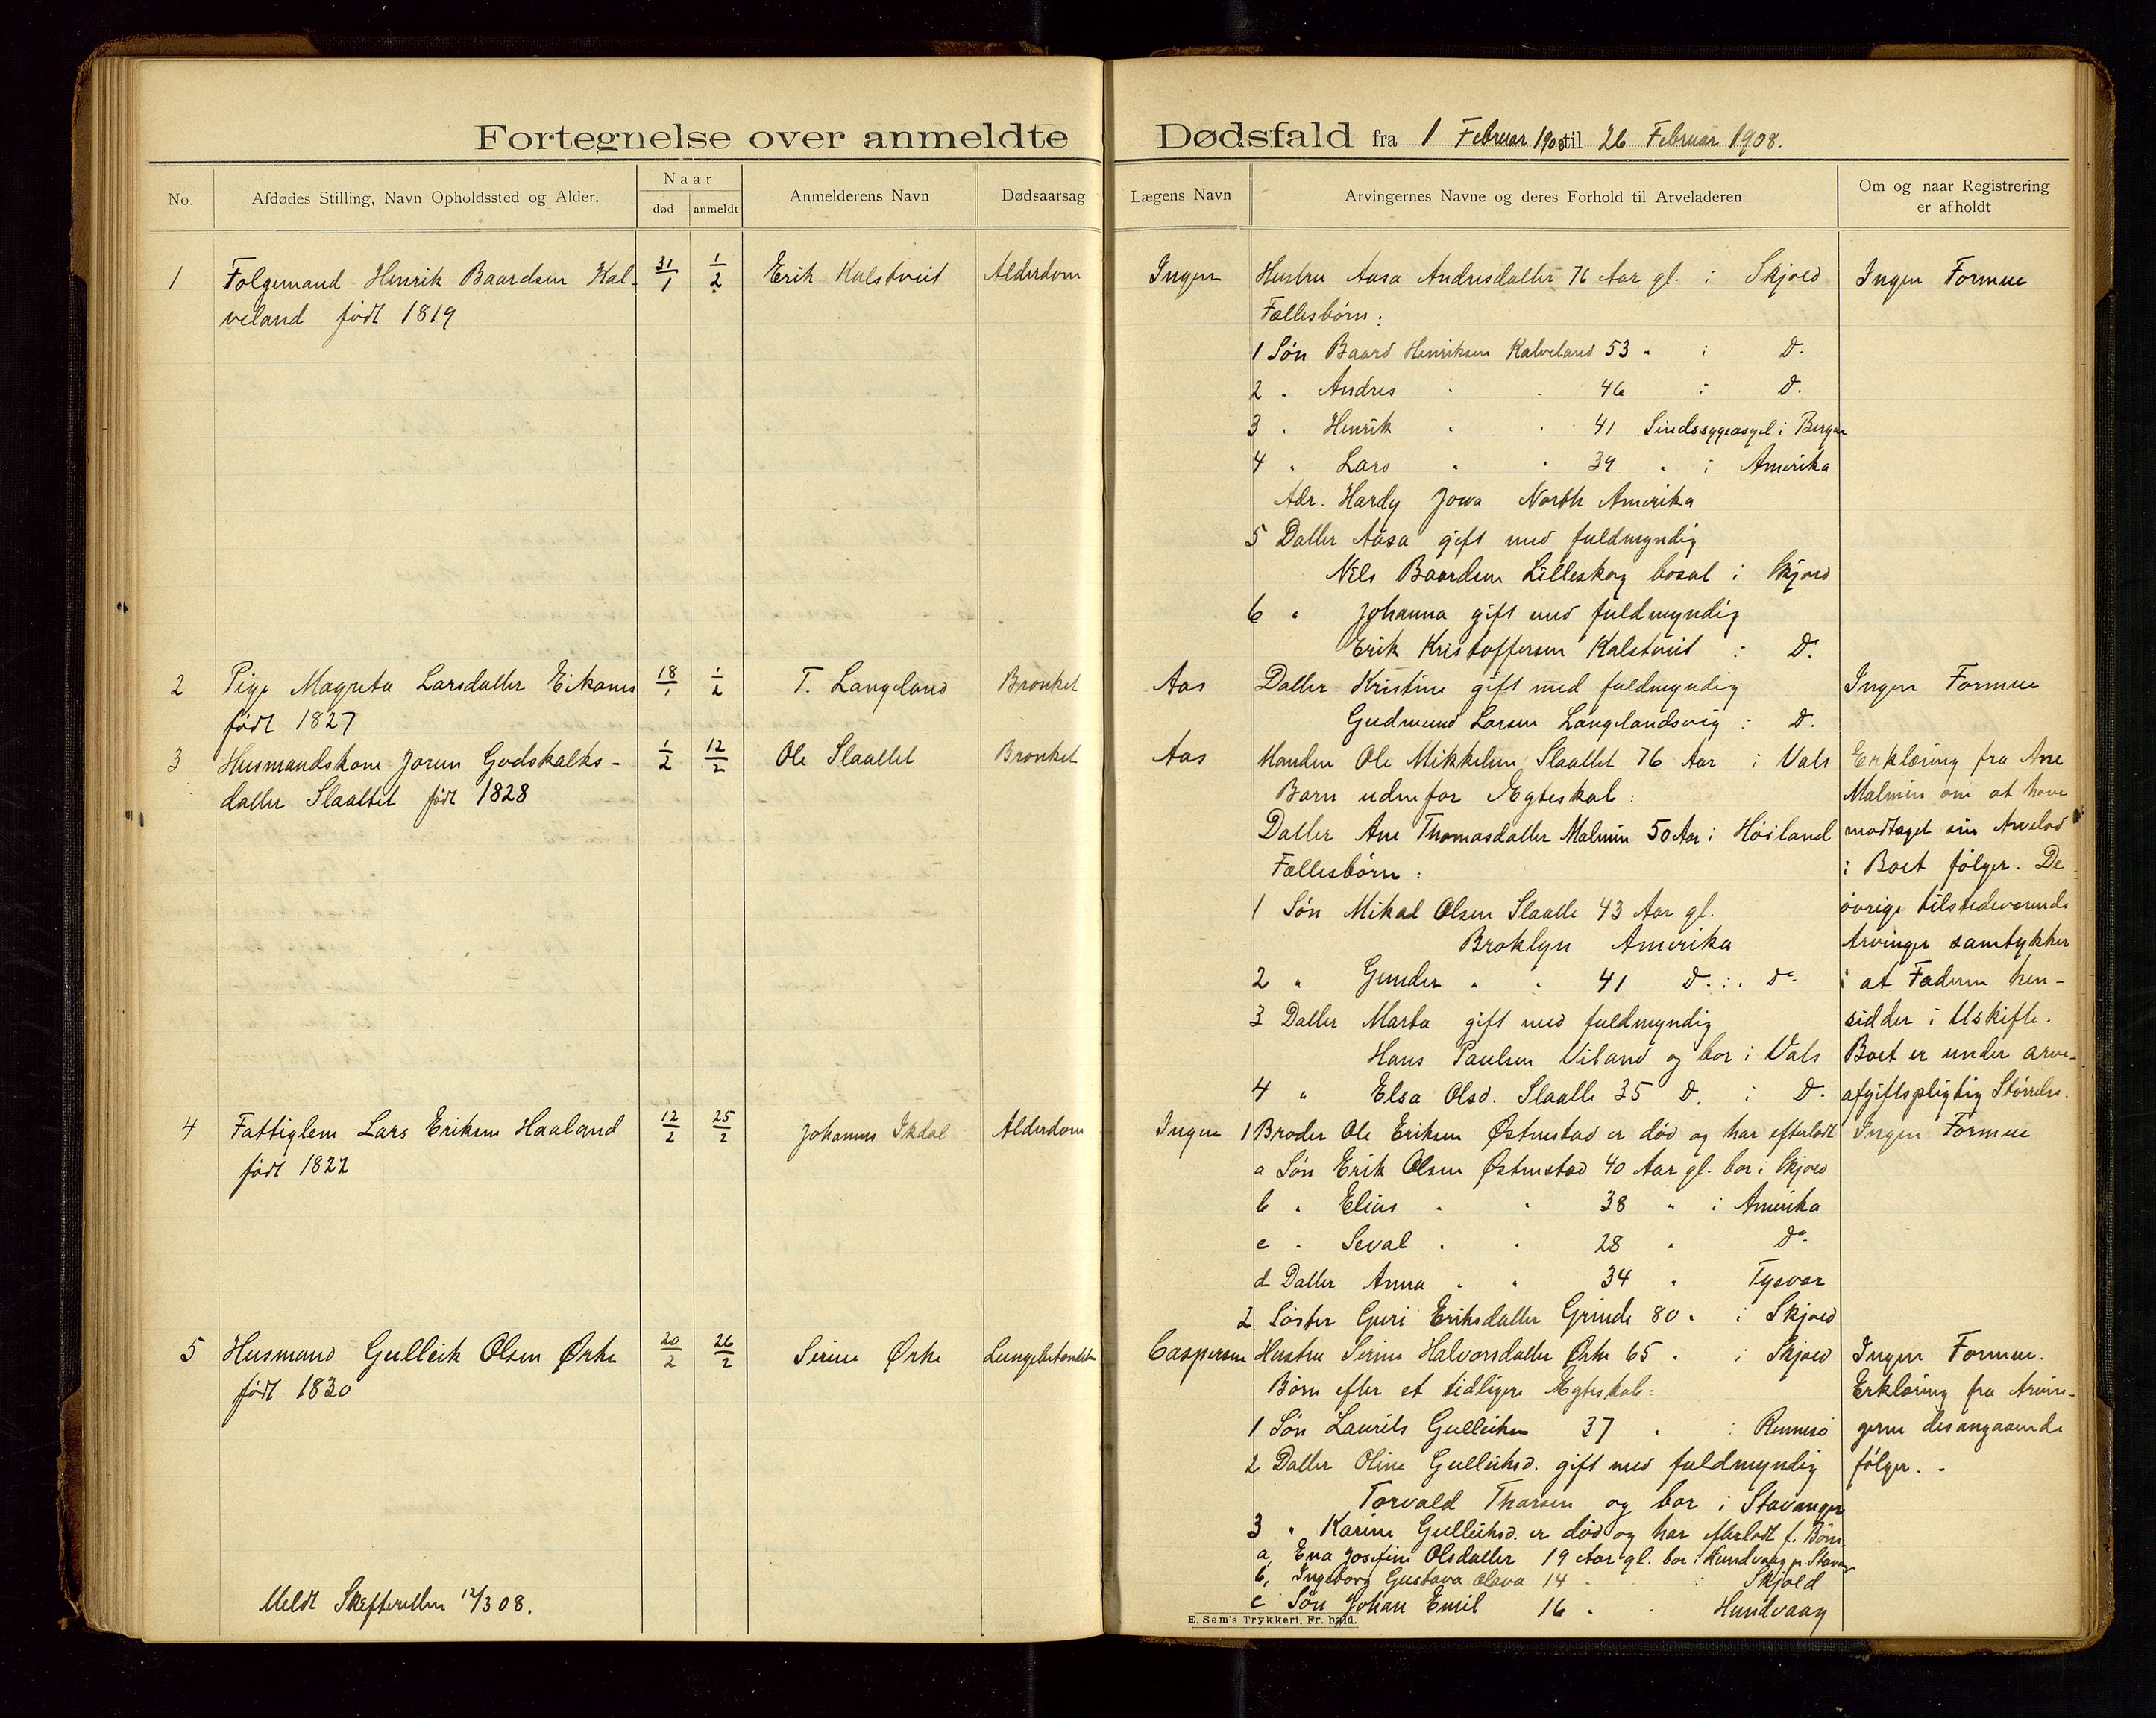 Fortegnelse over anmeldte Dødsfald fra 1 Februar 1908 til 26 Februar 1908.
No.
Afdødes Stilling, Navn Opholdssted og Alder.
Naar
død
anmeldt
Anmelderens Navn
Dødsaarsag
Lægens Navn
Arvingernes Navne og deres Forhold til Arveladeren
Om og naar Registrering
er afholdt
1 Folgemand Henrik Baardsen Kal- 31/1 1/2 Erik Kalstveit Alderdom
veland født 1819
Ingen
Hustru Aasa Andresdatter 76 Aar gl. i Skjold
Fællesbørn:
1 Søn Baard Henriksen Kalveland 53 " i D.
2 " Andres " " 46 i D.
3 " Henrik " " 41 Sindssygeasyl i Bergen
4 " Lars " " 39 " i Amerika
Adr. Hardy Jowa North Amerika
5 Datter Aasa gift med fuldmyndig
Nils Baardsen Lilleskog bosat i Skjold
6 " Johanna gift med fuldmyndig
Erik Kristoffersen Kalstveit i D.
Ingen Formue
2 Pige Magreta Larsdatter Eikanes 18/1 1/2 T. Langeland Bronket
født 1827
Aas
Datter Kristine gift med fuldmyndig
Gudmund Larsen Langelandsvig i D.
Ingen Formue
3 Husmandskone Jorun Godskalks- 1/2 12/2 Ole Slaattet Bronket
datter Slaattet født 1828
Aas
Manden Ole Mikkelsen Slaattet 76 Aar i Vats
Barn udenfor Ægteskab:
Datter Ane Thomasdatter Malmin 50 Aar i Höiland
Fællesbörn:
1 Søn Mikal Olsen Slaatte 43 Aar gl.
Broklyn Amerika
2 " Gunder " " 41 D. i. Do.
3 Datter Marta gift med fuldmyndig
Hans Paulsen Viland og bor i Vats
4 " Elsa Olsd. Slaatte 35 D. i D.
Erklæring fra Ane
Malmin om at have
modtaget sin Arvelod
i Boet følger. De
øvrige tilstedeværende
Arvinger samtykker
i at Faderen hen-
sidder i Uskifte.
Boet er under arve-
afgiftspligtig Størrelse.
4 Fattiglem Lars Eriksen Haaland 12/2 25/2 Johannes Ikdal Alderdom
født 1822
Ingen
1 Broder Ole Eriksen Østenstad er død og har efterladt
a Søn Erik Olsen Østenstad 40 Aar gl. bor i Skjold
b " Elias " " 38 " i Amerika
c " Seval " " 28 " Do.
d Datter Anna " " 34 " Tysvær
2. Søster Guri Eriksdatter Grinde 80 " i Skjold
Ingen Formue
5 Husmand Gulleik Olsen Ørke 20/2 26/2 Serine Ørke Lungebetændelse
født 1830
Caspersen
Hustru Serine Halvorsdatter Ørke 65 " i Skjold
Børn efter et tidligere Ægteskab:
1 Søn Laurits Gulleiksen 37 " i Rennesö
2 Datter Oline Gulleiksd. gift med fuldmyndig
Torvald Tharsen og bor i Stavanger
3 " Karine Gulleiksd. er død og har efterladt f. Börn
a, Ena Josefine Olsdatter 19 Aar gl. bor i Hundvaag pr. Stavar
b, Ingeborg Gustava Olava 14 " i Skjold
c Søn Johan Emil 16 " Hundvaag
Ingen Formue.
Erklæring fra Arvin-
gerne desangaaende
følger. -
Meldt Skifteretten 12/3 08.
E. Sem's Trykkeri, Fr. hald.